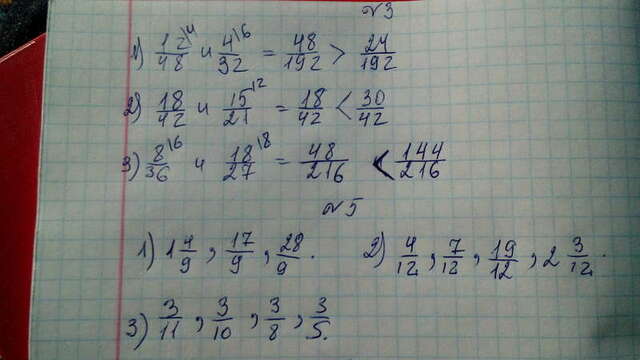 №3
1) 12/48 \4 и 4/32 \6 = 48/192 > 24/192
2) 18/42 и 15/21 \2 = 18/42 < 30/42
3) 8/36 \6 и 18/27 \8 = 48/216 < 144/216
№5
1) 1 4/9, 17/9, 28/9. 2) 4/12, 7/12, 19/12, 2 3/12.
3) 3/11, 3/10, 3/8, 3/5.